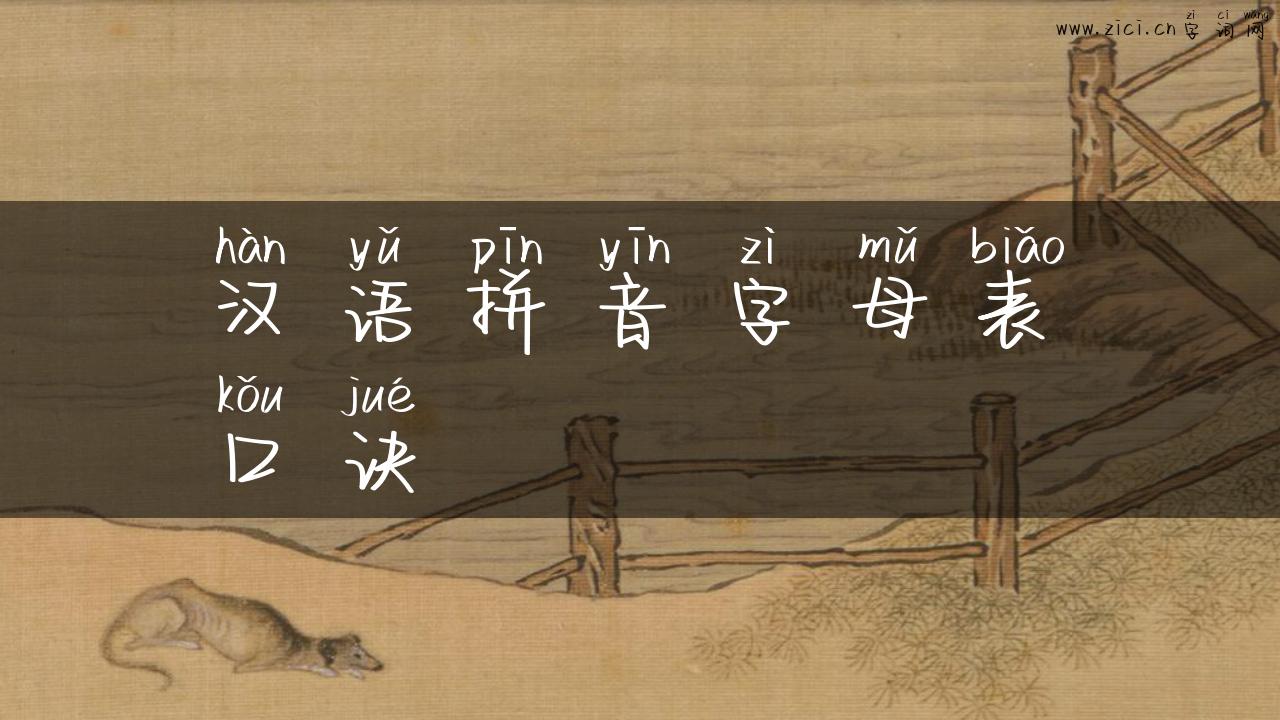 zì cí wǎng
www.zici.cn 字词网
hàn yǔ pīn yīn zì mǔ biǎo
汉语拼音字母表
kǒu jué
口诀